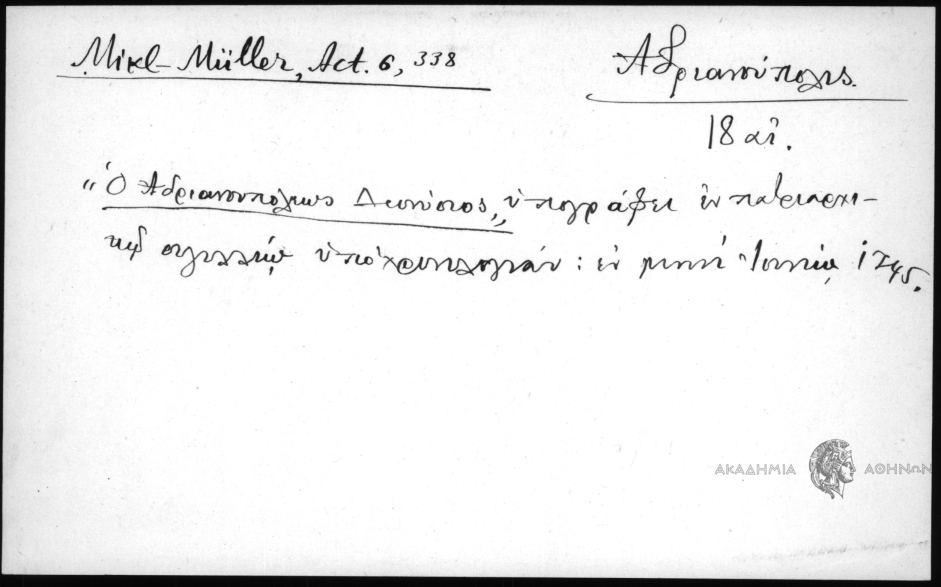 Mikl-Müller, Act. 6, 338
Ἀδριανούπολις.
18 αἰ.
"Ὁ Ἀδριανουπόλεως Διονύσιος," ὑπογράφει ἐν πατριαρχι-
κῷ σιγιλλίῳ ὑπὸ χρονολογίαν: ἐν μηνὶ Ἰουνίῳ 1745.
ΑΚΑΔΗΜΙΑ ΑΘΗΝΩΝ